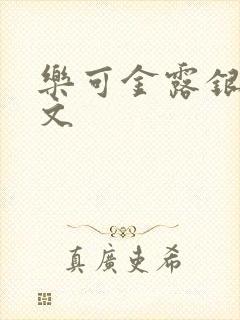 樂可金露銀
文
真廣吏希